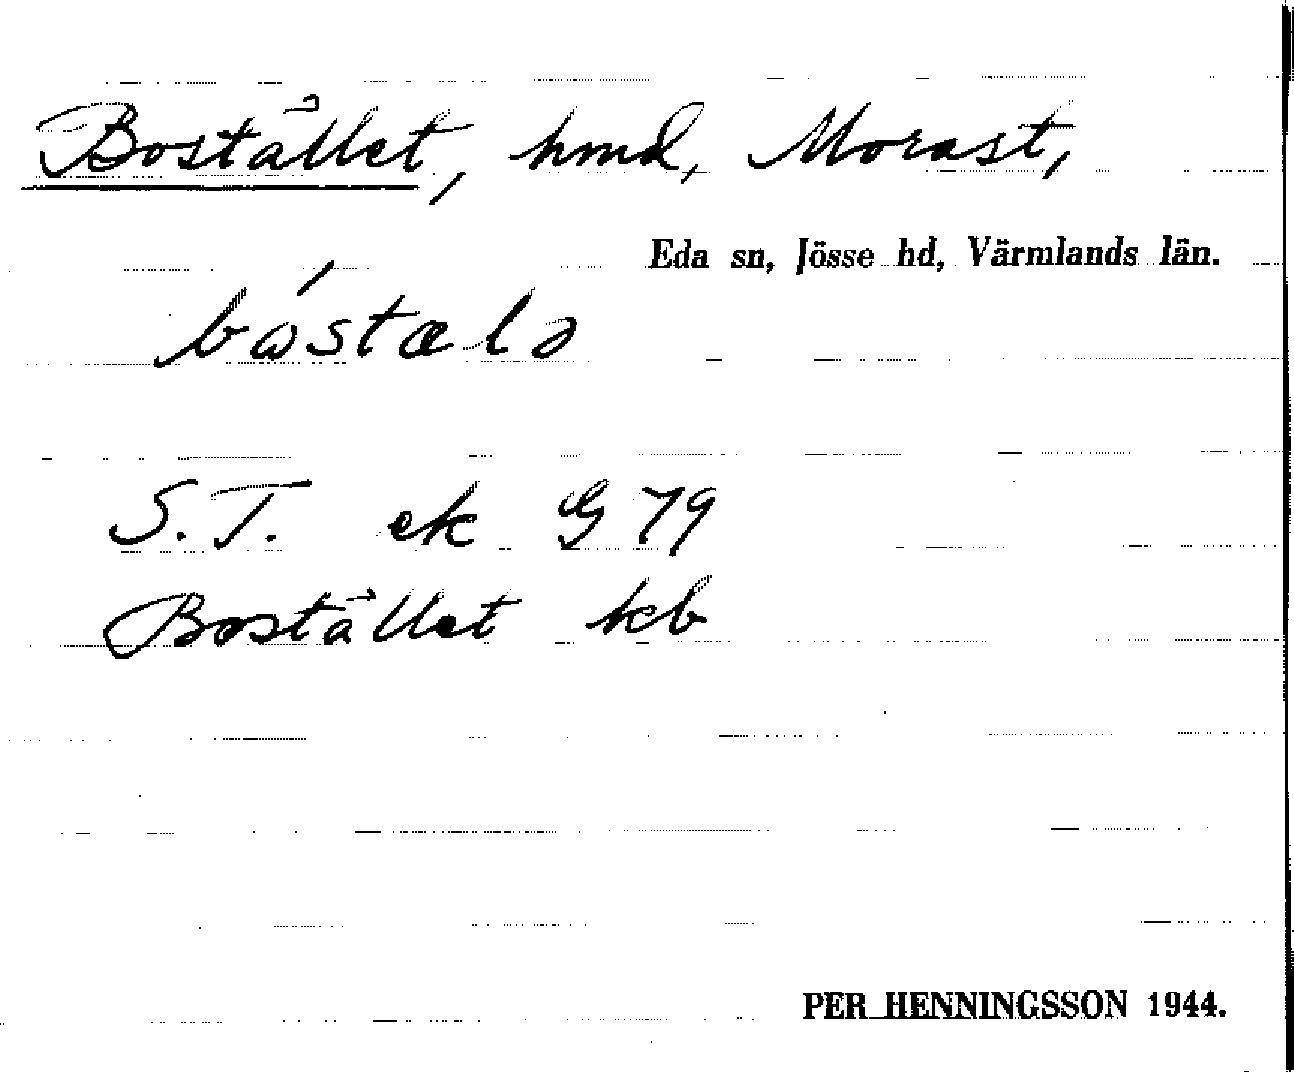 Bostället, hmd, Morast,
Eda sn, Jösse hd, Värmlands län.
bóstælə
S.T. ek G 79
Bostället kb
PER HENNINGSSON 1944.